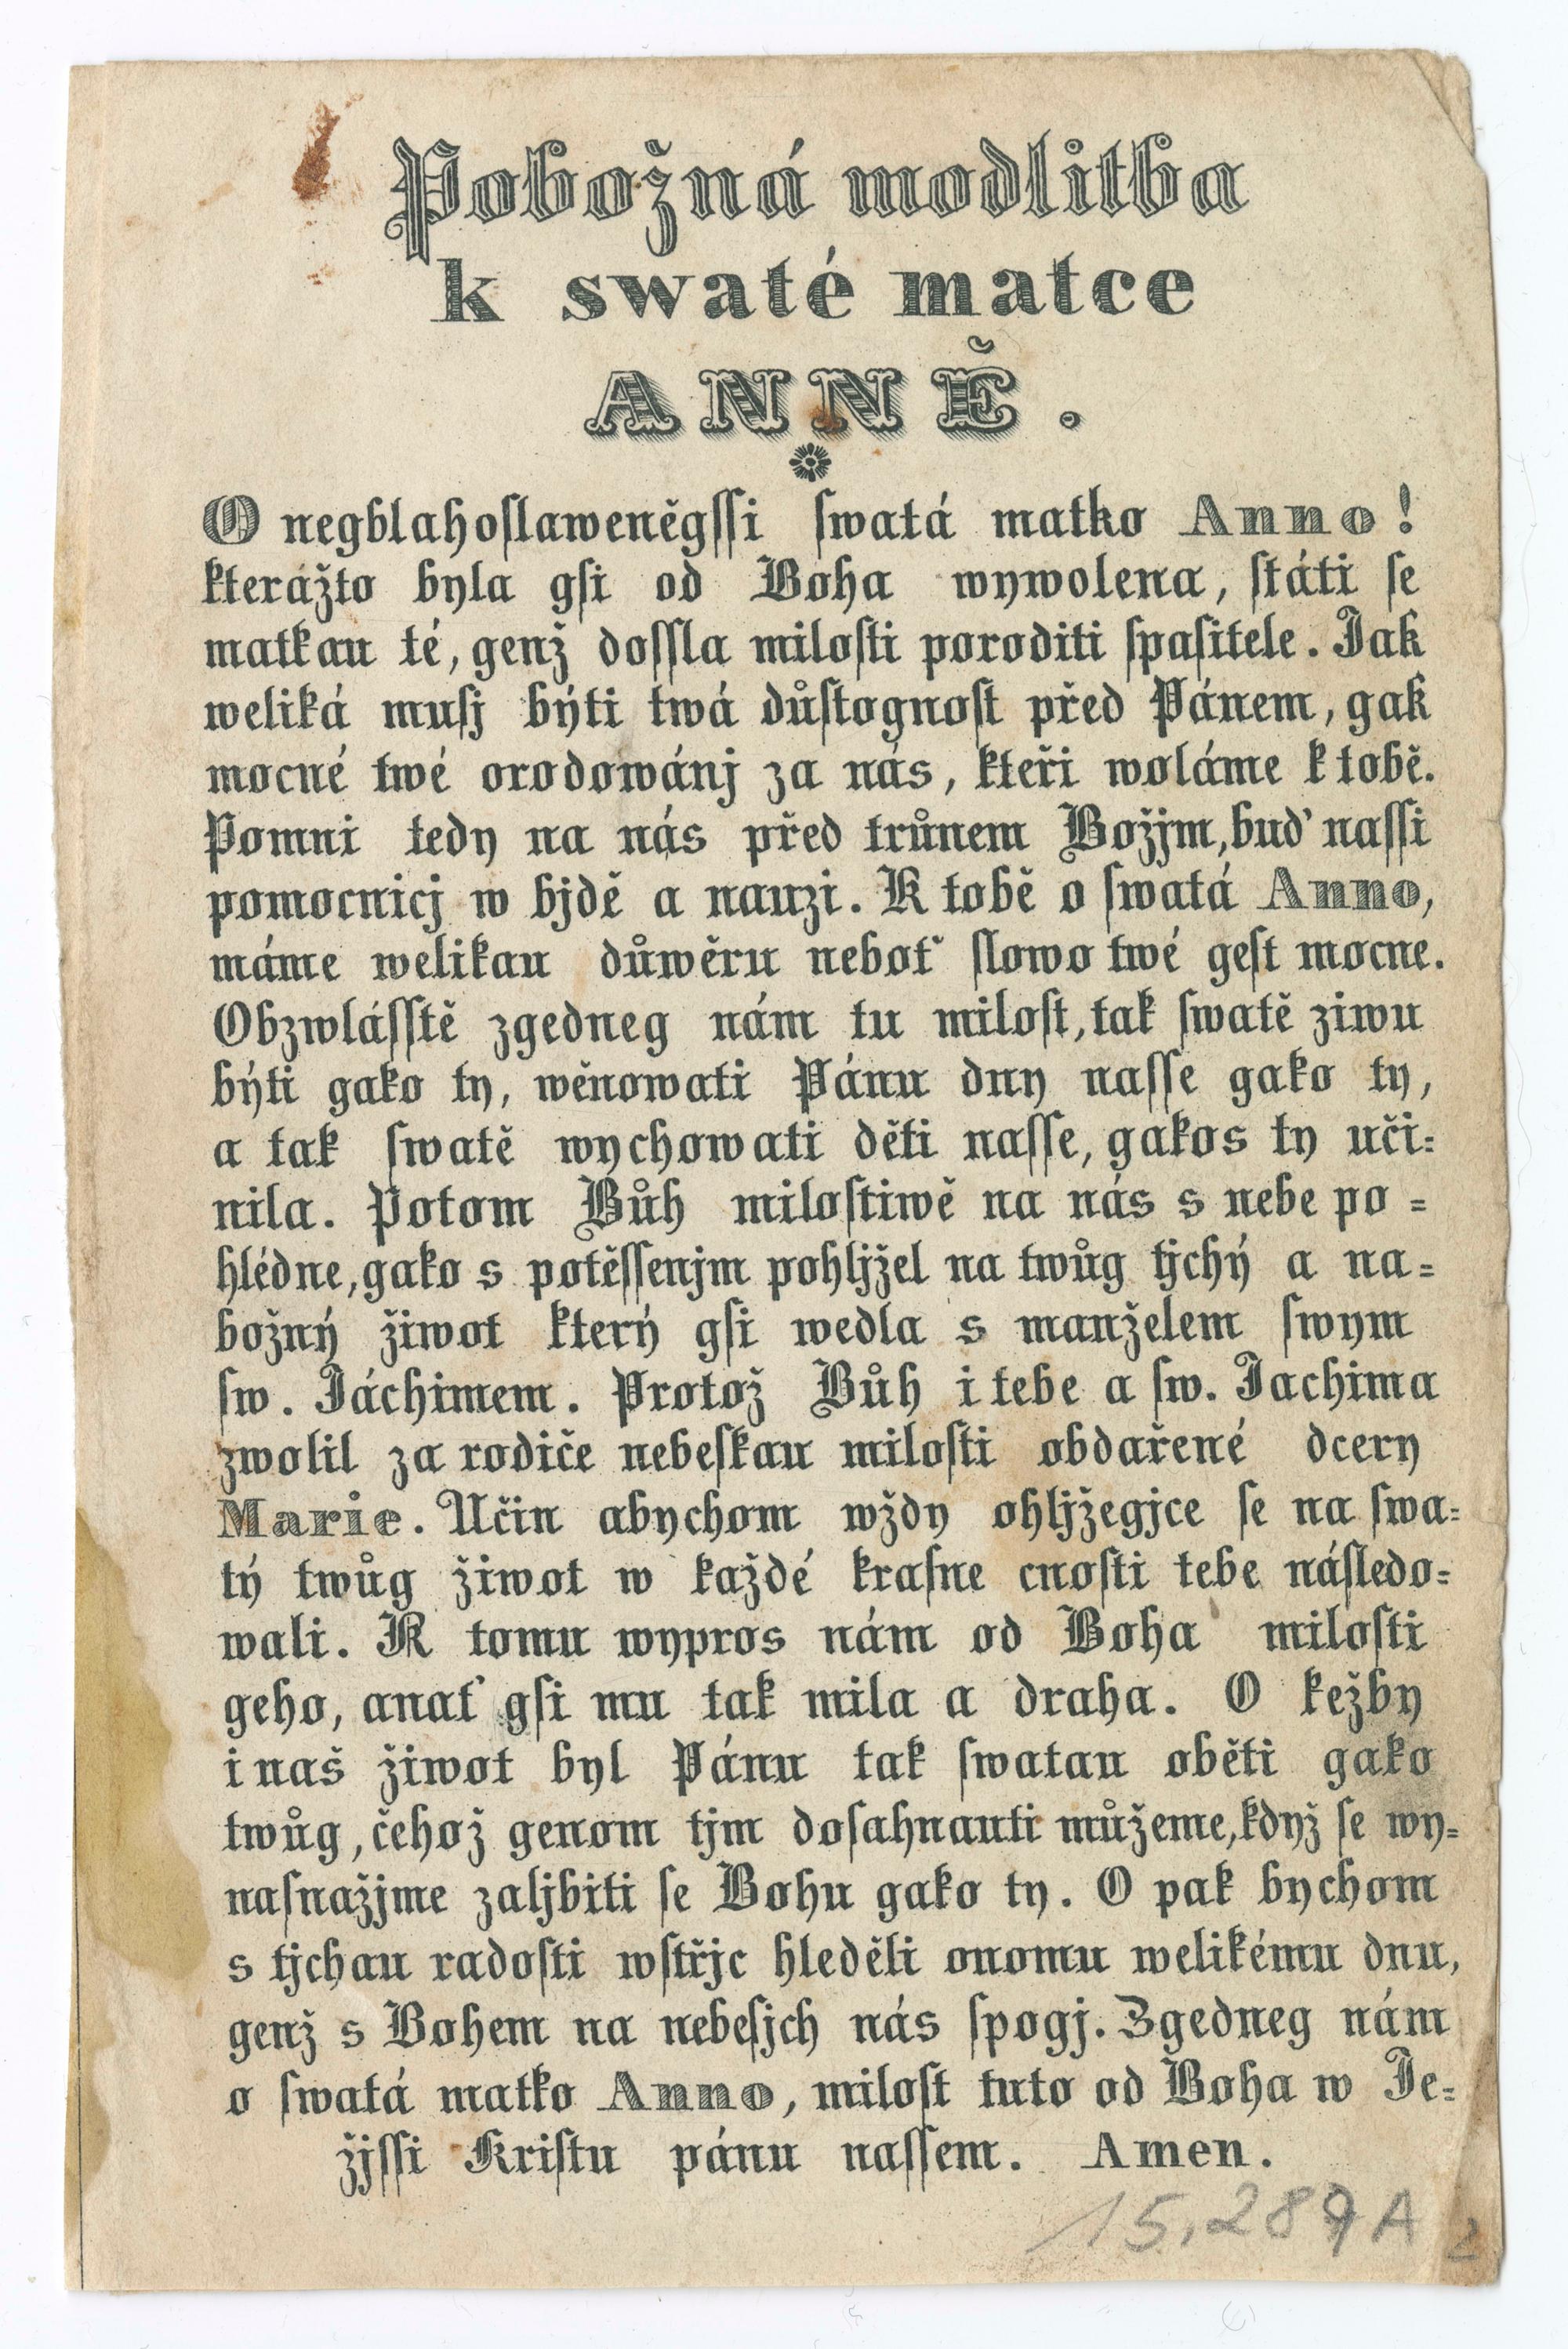 Pobožná modlitba
k swaté matce
ANNĚ.
O negblahoſlaweněgſſi ſwatá matko Anno!
kterážto byla gſi od Boha wywolena, ſtáti ſe
matkau té, genž doſſla miloſti poroditi ſpaſitele. Jak
weliká muſj býti twá důſtognoſt před Pánem, gak
mocné twé orodowánj za nás, kteři woláme k tobě.
Pomni tedy na nás před trůnem Božjm, buď naſſi
pomocnicj w bjdě a nauzi. K tobě o ſwatá Anno,
máme welikau důwěru neboť ſlowo twé geſt mocne.
Obzwláſſtě zgedneg nám tu miloſt, tak ſwatě ziwu
býti gako ty, wěnowati Pánu dny naſſe gako ty,
a tak ſwatě wychowati děti naſſe, gakos ty uči=
nila. Potom Bůh miloſtiwě na nás s nebe po=
hlédne, gako s potěſſenjm pohljžel na twůg tjchý a na=
božný žiwot který gſi wedla s manželem ſwym
ſw. Jáchimem. Protož Bůh i tebe a ſw. Jachima
zwolil za rodiče nebeſkau miloſti obdařené dcery
Marie. Učin abychom wždy ohljžegjce ſe na ſwa=
tý twůg žiwot w každé kraſne cnoſti tebe náſledo=
wali. K tomu wypros nám od Boha miloſti
geho, anať gſi mu tak mila a draha. O kežby
i naš žiwot byl Pánu tak ſwatau oběti gako
twůg, čehož genom tjm doſahnauti můžeme, když ſe wy=
naſnažjme zaljbiti ſe Bohu gako ty. O pak bychom
s tjchau radoſti wſtřjc hleděli onomu welikému dnu,
genž s Bohem na nebeſjch nás ſpogj. Zgedneg nám
o ſwatá matko Anno, miloſt tuto od Boha w Je=
žjſſi Kriſtu pánu naſſem. Amen.
15,289 A 2